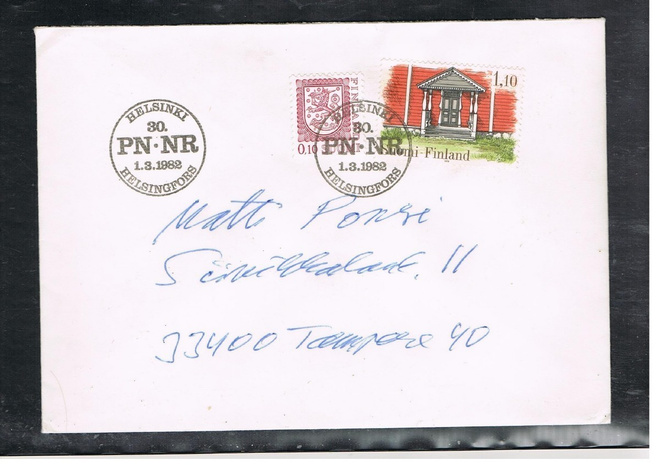 HELSINKI
30.
PN·NR
1.3.1982
HELSINGFORS
0.10
FIN
HELSINKI
30.
PN·NR
1.3.1982
HELSINGFORS
1,10
Suomi-Finland
Matti
11
33400 Tampere 40